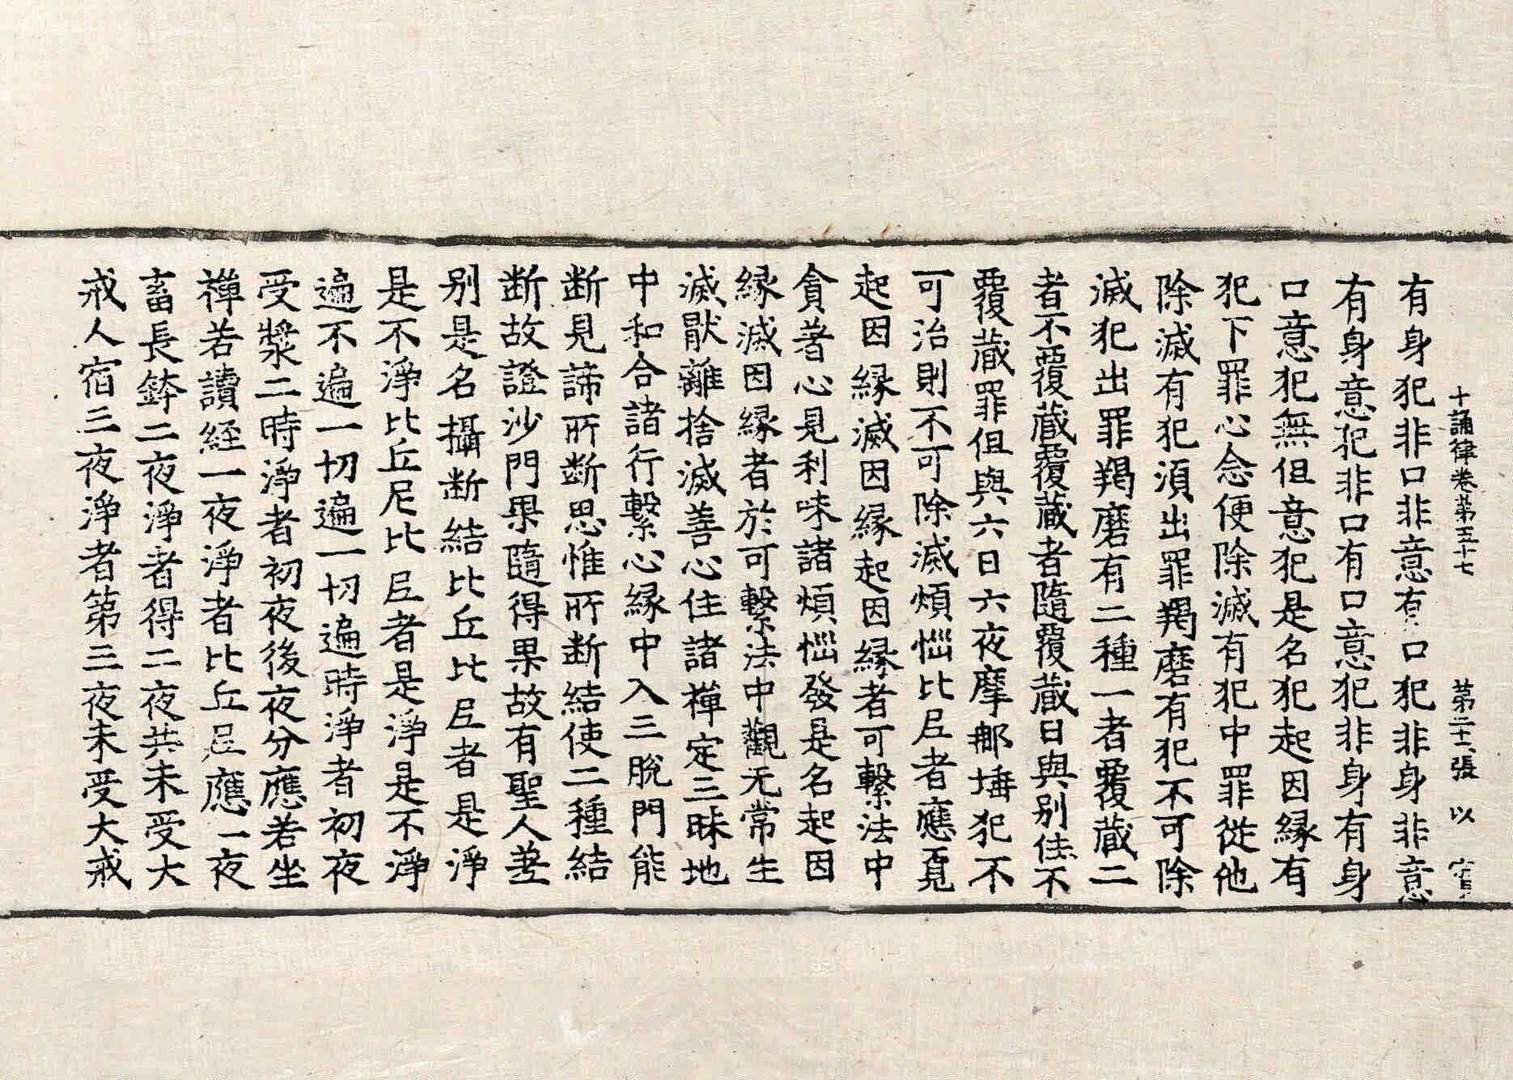 十誦律卷苐五十七　苐二十六張　以
有身犯非口非意有口犯非身非意
有身意犯非口有口意犯非身有身
口意犯無但意犯是名犯起因縁有
犯下罪心念便除滅有犯中罪從他
除滅有犯湏出罪羯磨有犯不可除
滅犯出罪羯磨有二種一者覆藏二
者不覆藏覆藏者隨覆藏日與别住不
覆藏罪但與六日六夜摩那埵犯不
可治則不可除滅煩惱比𡰱者應覔
起因縁滅因縁起因縁者可繋法中
貪著心見利味諸煩惱發是名起因
縁滅因縁者於可繋法中觀无常生
滅猒離捨滅善心住諸禪定三昧地
中和合諸行繋心縁中入三脫門能
断見諦所断思惟所断結使二種結
断故證沙門果隨得果故有聖人差
别是名攝断結比丘比𡰱者是淨
是不淨比丘尼比𡰱者是淨是不淨
遍不遍一切遍一切遍時淨者初夜
受漿二時淨者初夜後夜分應若坐
禪若讀経一夜淨者比丘𡰱應一夜
畜長鉢二夜淨者得二夜共未受大
戒人宿三夜淨者第三夜未受大戒